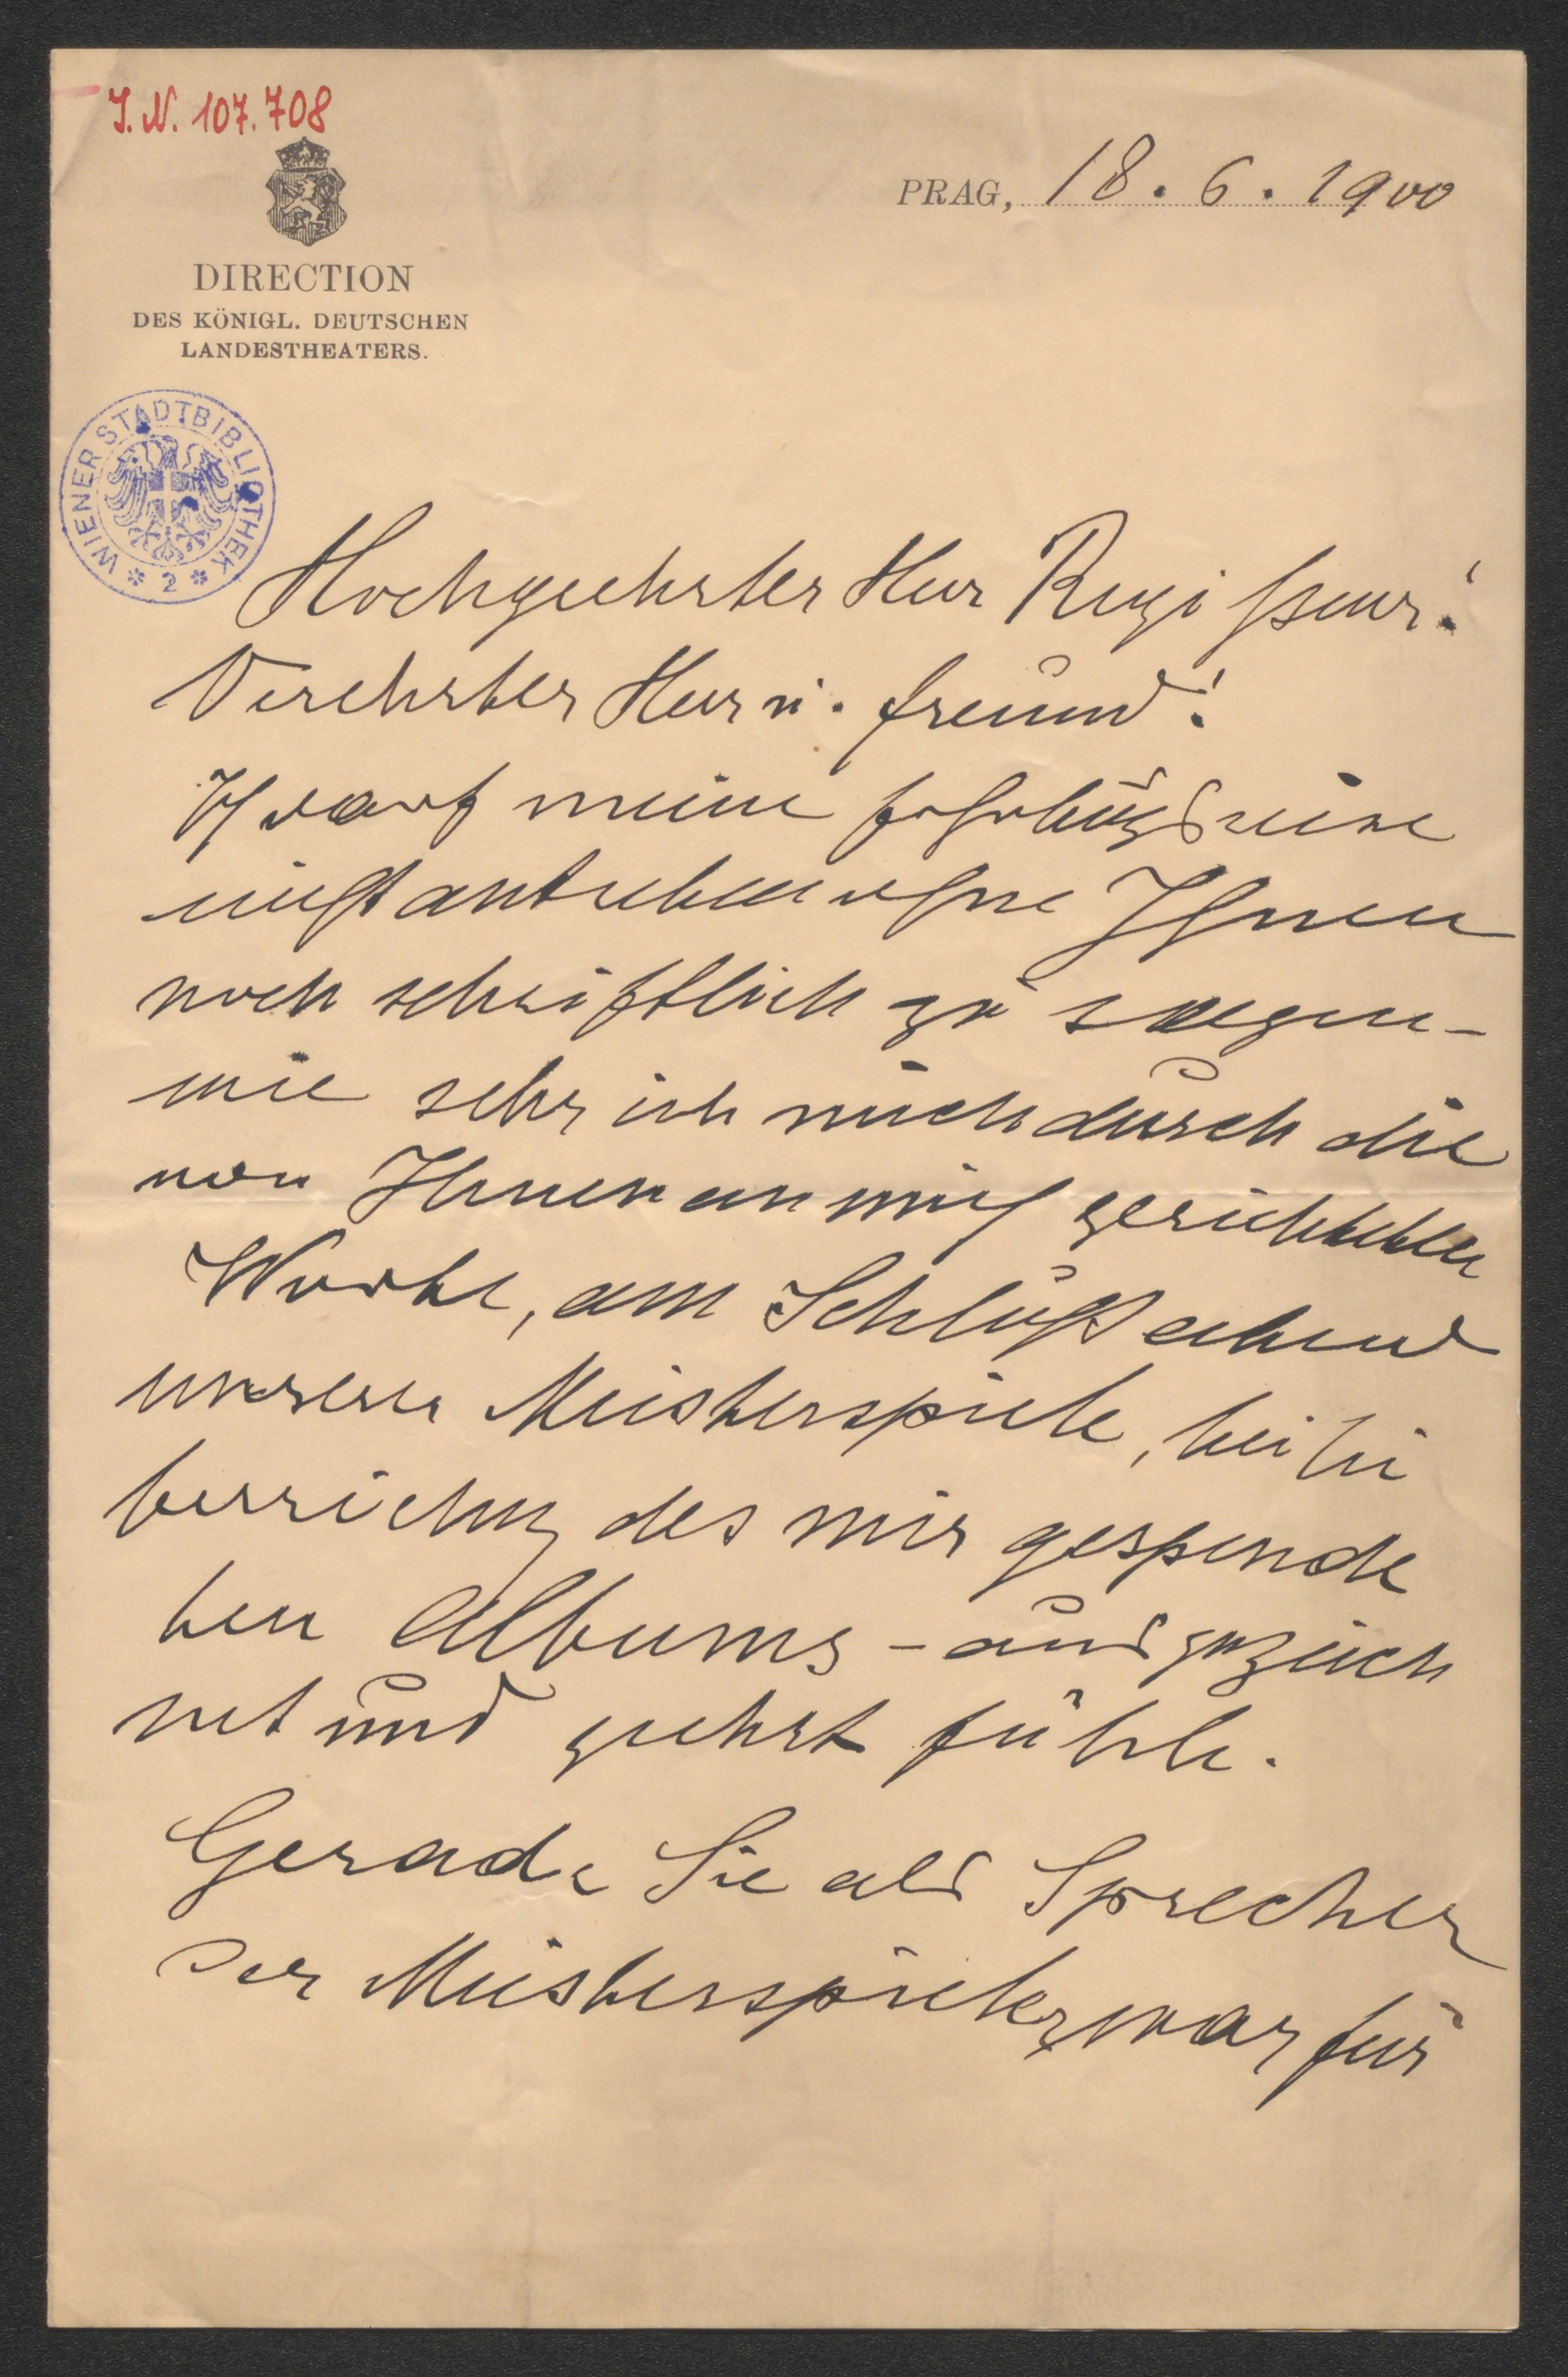 J. N. 107.708
PRAG, 18. 6. 1900
DIRECTION
DES KÖNIGL. DEUTSCHEN
LANDESTHEATERS.
WIENER STADTBIBLIOTHEK * 2 *
Hochgeehrter Herr Regisseur!
Verehrter Herr u. Freund!
Ich darf meine Erholungsreise
nicht antreten ohne Ihnen
noch schriftlich zu sagen –
wie sehr ich mich durch die
von Ihnen an mich gerichteten
Worte, am Schlußabend
unserer Meisterspiele, bei Ue
berreichung des mir gespende
ten Albums – ausgezeich
net und geehrt fühle.
Gerade Sie als Sprecher
der Meisterspieler war für